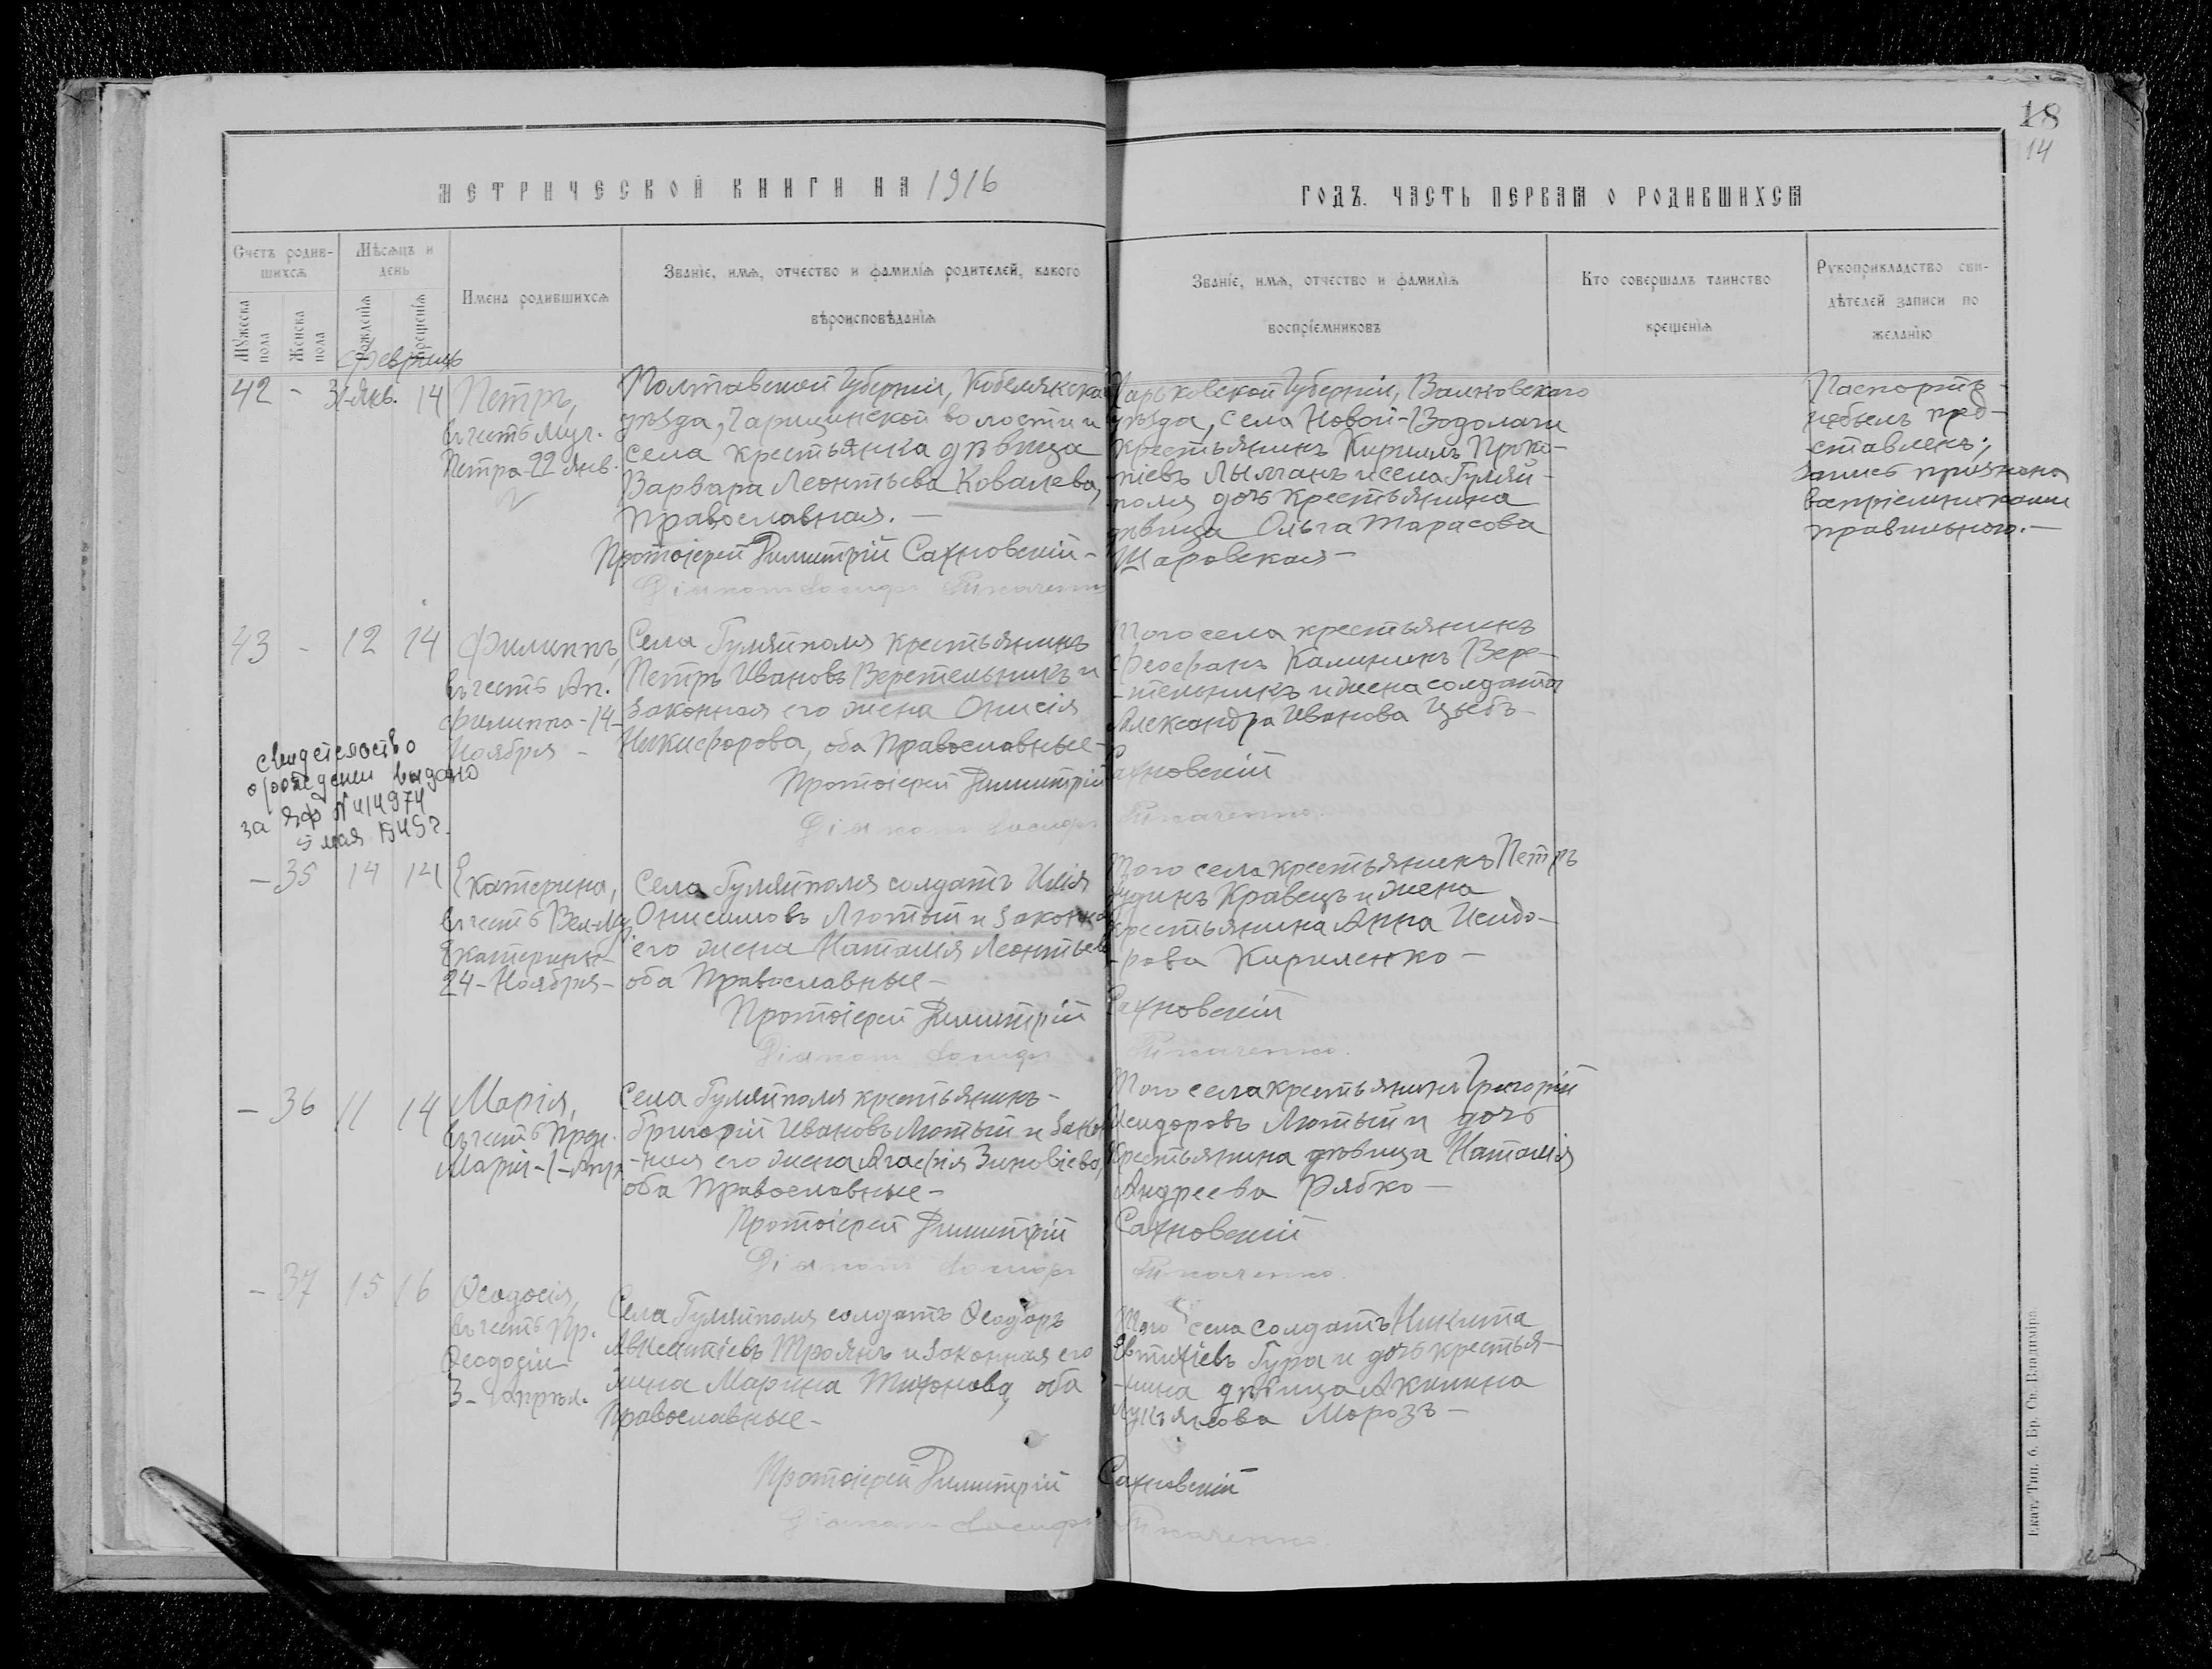 18
14
МЕТРИЧЕСКОЙ КНИГИ НА 1916
ГОДЪ. ЧАСТЬ ПЕРВАЯ О РОДИВШИХСЯ
Счетъ родив-
шихся
Мужеска
пола
Женска
пола
Мѣсяцъ и
день
рожденія
крещенія
Имена родившихся
Званіе, имя, отчество и фамилія родителей, какого
вѣроисповѣданія
Званіе, имя, отчество и фамилія
воспріемниковъ
Кто совершалъ таинство
крещенія
Рукоприкладство сви-
дѣтелей записи по
желанію
Февраль
42 - 31-Янв. 14
Петръ,
въ честь Муч.
Петра-22 Янв.
Полтавской Губерніи, Кобелякска
уѣзда, Царичинской волости и
села крестьянка дѣвица
Варвара Леонтьева Ковалева,
Православная. —
Протоіерей Димитрій Сахновскій -
Діаконъ Іосифъ Ткаченко
Харьковской Губерніи, Валковскаго
уѣзда, села Новой-Водолаги
крестьянинъ Кириллъ Проко-
піевъ Лыманъ и села Гуляй-
поля дочь крестьянина
дѣвица Ольга Тарасова
Шаровская —
Паспортъ
небылъ пред-
ставленъ;
запись признана
воспріемниками
правильною. —
43 - 12 14
Филиппъ,
въ честь Ап.
Филиппа-14-
Ноября -
Села Гуляйполя крестьянинъ
Петръ Ивановъ Веретельникъ и
законная его жена Онисія
Никифорова, оба Православные -
Протоіерей Димитрій Сахновскій
Діаконъ Іосифъ Ткаченко.
Того села крестьянинъ
Феофанъ Калининъ Вере-
-тельникъ и жена солдата
Александра Иванова Цыбъ -
свидетельство
о рождении выдано
за ЯФ № 414974
5 мая 1945 г.
- 35 14 14
Екатерина,
въ честь Вел-Му
Екатерины-
24-Ноября-
Села Гуляйполя солдатъ Илія
Онисимовъ Лютый и законна
его жена Наталія Леонтьева
оба Православные -
Протоіерей Димитрій Сахновскій
Діаконъ Іосифъ Ткаченко.
Того села крестьянинъ Петръ
Іудинъ Кравецъ и жена
крестьянина Анна Исидо-
-рова Кириленко -
- 36 11 14
Марія,
въ честь Прп.
Маріи-1-Апр.
Села Гуляйполя крестьянинъ -
Григорій Ивановъ Лютый и закон
-ная его жена Агафія Зиновіева,
оба Православные -
Протоіерей Димитрій Сахновскій
Діаконъ Іосифъ Ткаченко.
Того села крестьянинъ Григорій
Исидоровъ Лютый и дочь
крестьянина дѣвица Наталія
Андреева Рябко -
- 37 15 16
Ѳеодосія,
въ честь Пр.
Ѳеодосіи-
3- Апрѣл.
Села Гуляйполя солдатъ Ѳеодоръ
Авксентіевъ Троянъ и законная его
жена Марина Тихонова, оба
Православные -
Протоіерей Димитрій Сахновскій
Діаконъ Іосифъ Ткаченко
Того села солдатъ Никита
Евтихіевъ Гура и дочь крестья-
-нина дѣвица Акилина
Лукьянова Морозъ -
Екат. Тип. б. Бр. Св. Владиміра.